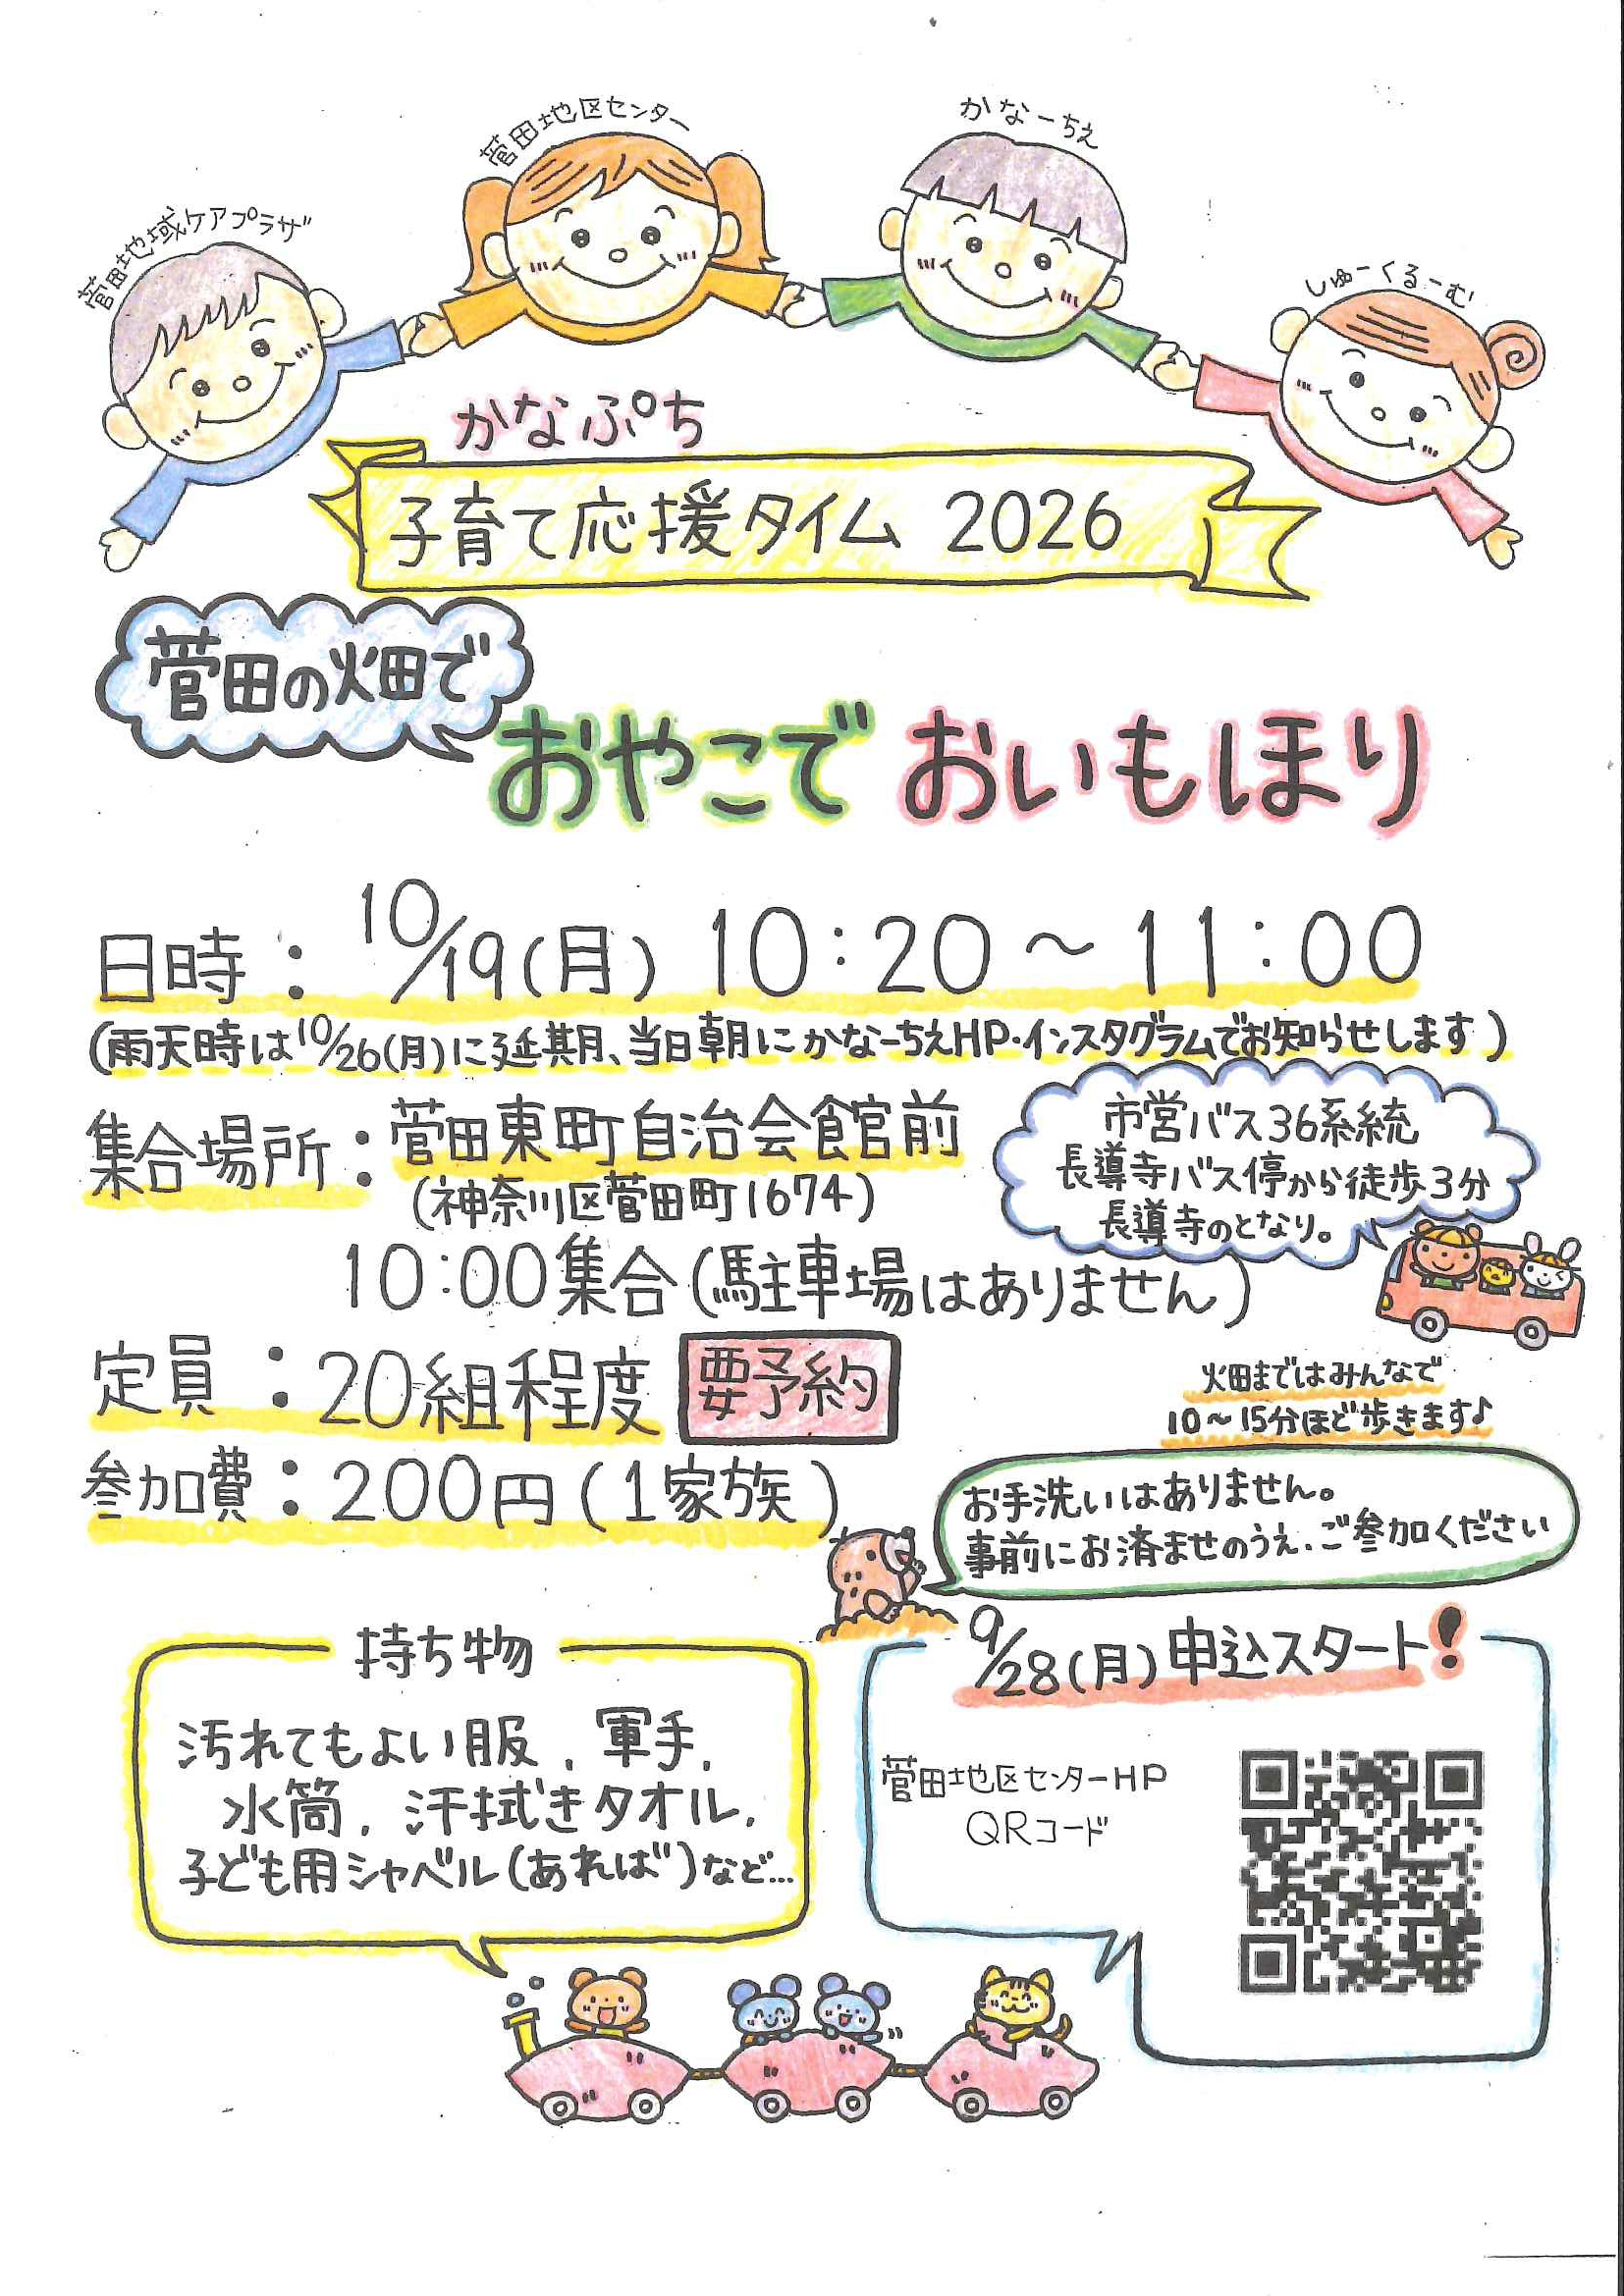 菅田地域ケアプラザ
菅田地区センター
かなーちえ
しゅーくるーむ
かなぷち
子育て応援タイム 2026
菅田の畑で
おやこで おいもほり
日時：10/19(月) 10:20～11:00
(雨天時は10/26(月)に延期、当日朝にかなーちえHP・インスタグラムでお知らせします)
集合場所：菅田東町自治会館前
(神奈川区菅田町1674)
10:00集合(駐車場はありません)
市営バス36系統
長導寺バス停から徒歩3分
長導寺のとなり。
定員：20組程度 要予約
畑まではみんなで
10～15分ほど歩きます♪
参加費：200円(1家族)
お手洗いはありません。
事前にお済ませのうえ、ご参加ください
持ち物
汚れてもよい服、軍手、
水筒、汗拭きタオル、
子ども用シャベル(あれば)など…
9/28(月)申込スタート！
菅田地区センターHP
QRコード